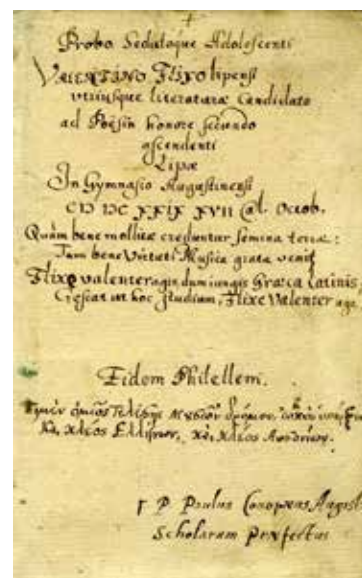 Probo Seduloque Adolescenti
VALENTINO Flixo lipensi
utriusque literaturæ Candidato
ad Poësin honore secundo
ascendenti
Lipæ
In Gymnasio Augustinensi
CIƆ IƆC XXIX XVII Cal. Octob.
Quàm bene mollitæ creduntur semina terræ:
Tum bene Virtuti Musica grata venit
Flixe valenter agin dum iungis Græca Latinis,
Crescat ut hoc studium, Flixe Valenter age.
Eidem Philellem.
Καὶ κλέος Ἑλλήνων, καὶ κλέος
F P Paulus Conopæus August
Scholarum Præfectus